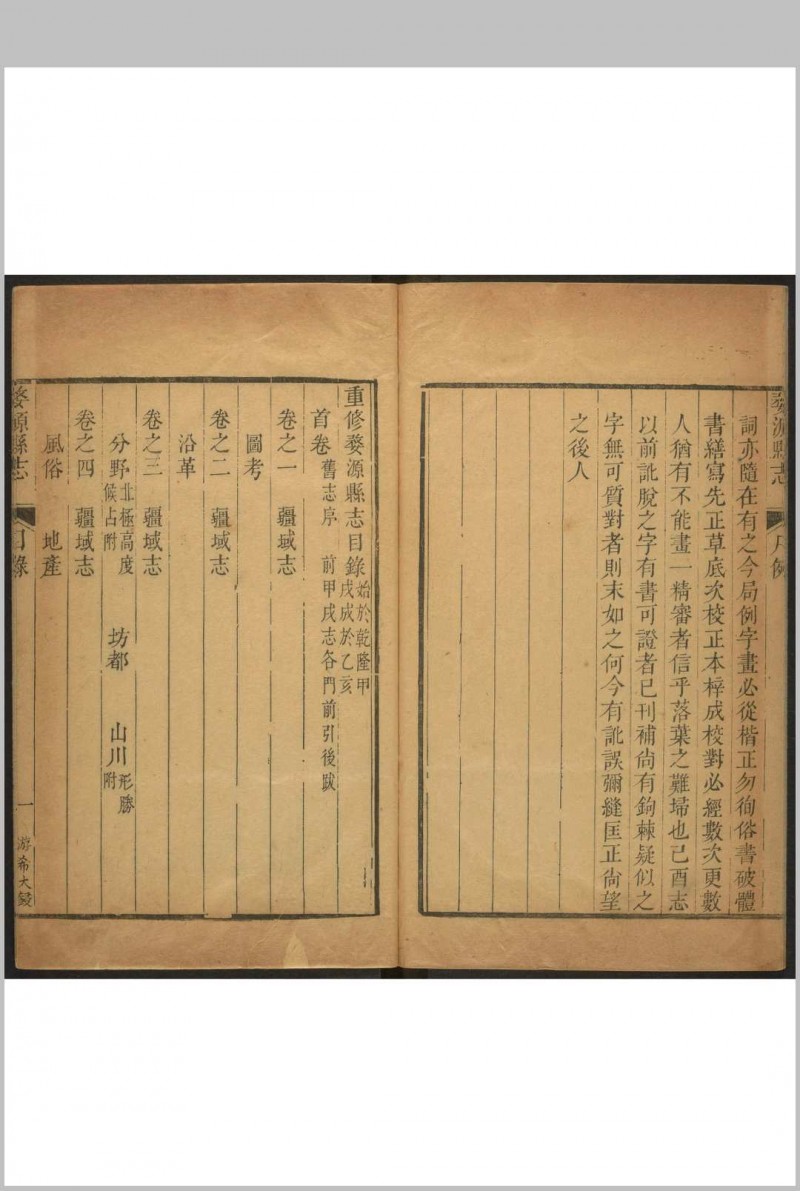 婺源縣志
凡例
詞亦隨在有之今局例字畫必從楷正勿徇俗書破體
書繕寫先正草底次校正本梓成校對必經數次更數
人猶有不能畫一精審者信乎落葉之難埽也己酉志
以前訛脫之字有書可證者已刊補尚有鉤棘疑似之
字無可質對者則末如之何今有訛誤彌縫匡正尚望
之後人
重修婺源縣志目錄始於乾隆甲
戌成於乙亥
首卷 舊志序 前甲戌志各門前引後跋
卷之一 疆域志
圖考
卷之二 疆域志
沿革
卷之三 疆域志
分野北極高度
候占附 坊都 山川形勝
附
卷之四 疆域志
風俗 地產
婺源縣志
目錄
一
游希大鋟